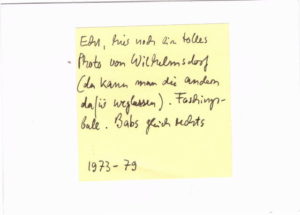 Edh, hier noch ein tolles
Photo von Wilhelmsdorf
(da kann man die andern
dafür weglassen). Faschings-
ball. Babs gleich rechts
1973-79